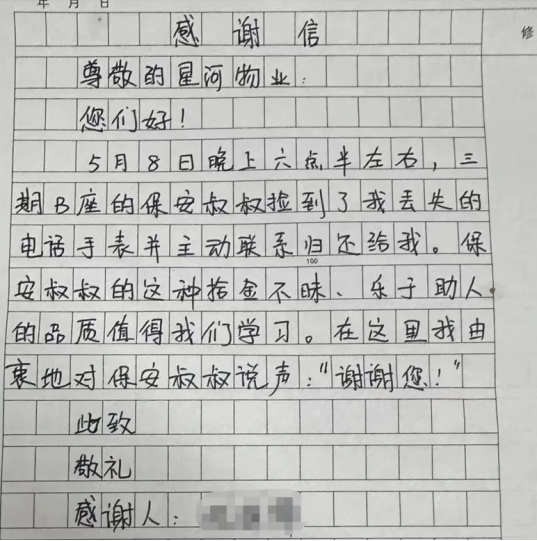 年 月 日
修
感谢信
尊敬的星河物业：
您们好！
5月8日晚上六点半左右，三
期B座的保安叔叔捡到了我丢失的
电话手表并主动联系归还给我。保
100
安叔叔的这种拾金不昧、乐于助人
的品质值得我们学习。在这里我由
衷地对保安叔叔说声：“谢谢您！”
此致
敬礼
感谢人：